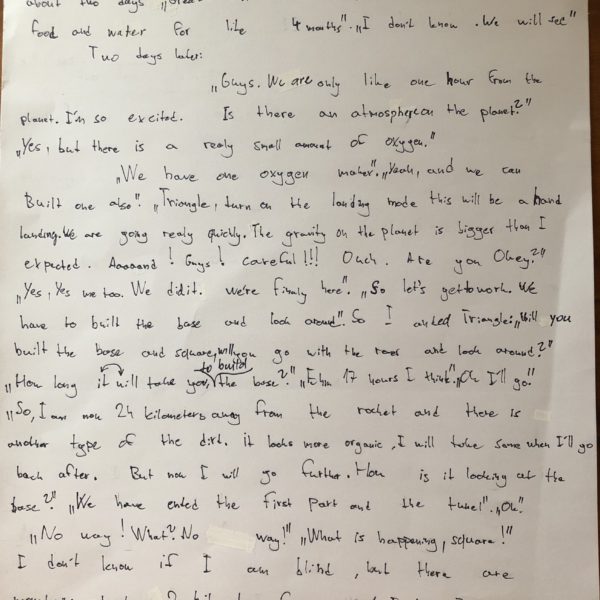 about two days „Great
food and water for like 4 months". „I don't know. We will see"
Two days later:
„Guys. We are only like one hour from the
planet. I'm so excited. Is there an atmosphere on the planet?"
„Yes, but there is a realy small amount of oxygen."
„We have one oxygen maker". „Yeah, and we can
Built one also". „Triangle, turn on the landing mode this will be a hand
landing. We are going realy quickly. The gravity on the planet is bigger than I
expected. Aaaaand! Guys! careful!!! Ouch. Are you Okey?"
„Yes, Yes me too. We did it. we're finnly here". „So let's get to work. We
have to built the base and look around". So I asked Triangle: „Will you
built the base and square, will you go with the rover and look around?"
„How long it will take you, to build the base?". „Ehm 17 hours I think". „Ok I'll go."
„So, I am now 24 kilometers away from the rocket and there is
another type of the dirt. it looks more organic, I will take some when I'll go
back after. But now I will go further. How is it looking at the
base?" „We have ended the first part and the tunel". „Ok"
„No way! What? No way!" „What is happening, square!"
I don't know if I am blind, but there are